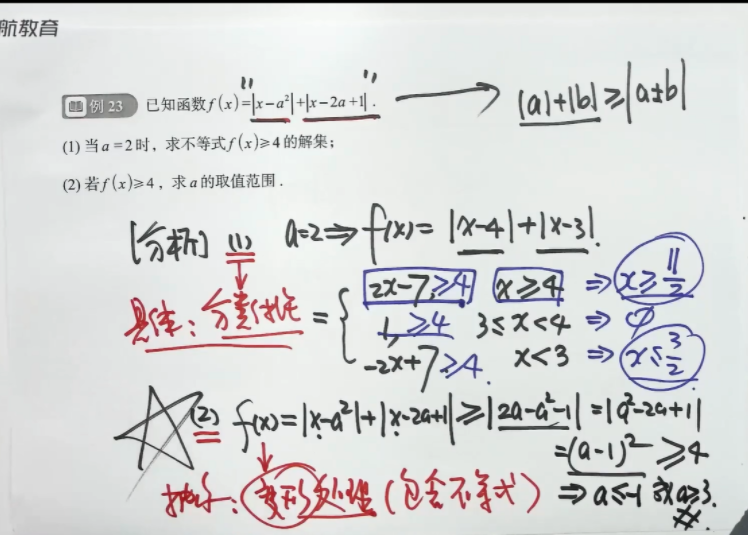 航教育
例 23 已知函数f(x)=|x-a²|+|x-2a+1|. → |a|+|b|≥|a±b|
(1) 当a=2时，求不等式f(x)≥4的解集；
(2) 若f(x)≥4，求a的取值范围.
[分析] (1) a=2⇒f(x)=|x-4|+|x-3|.
具体：分类讨论 = { 2x-7≥4 x≥4 ⇒ x≥11/2
1≥4 3≤x<4 ⇒ ∅
-2x+7≥4. x<3 ⇒ x≤3/2
(2) f(x)=|x-a²|+|x-2a+1|≥|2a-a²-1|=|a²-2a+1|
=(a-1)²≥4
抽象：变形处理(包含不等式) ⇒a≤-1或a≥3.
#